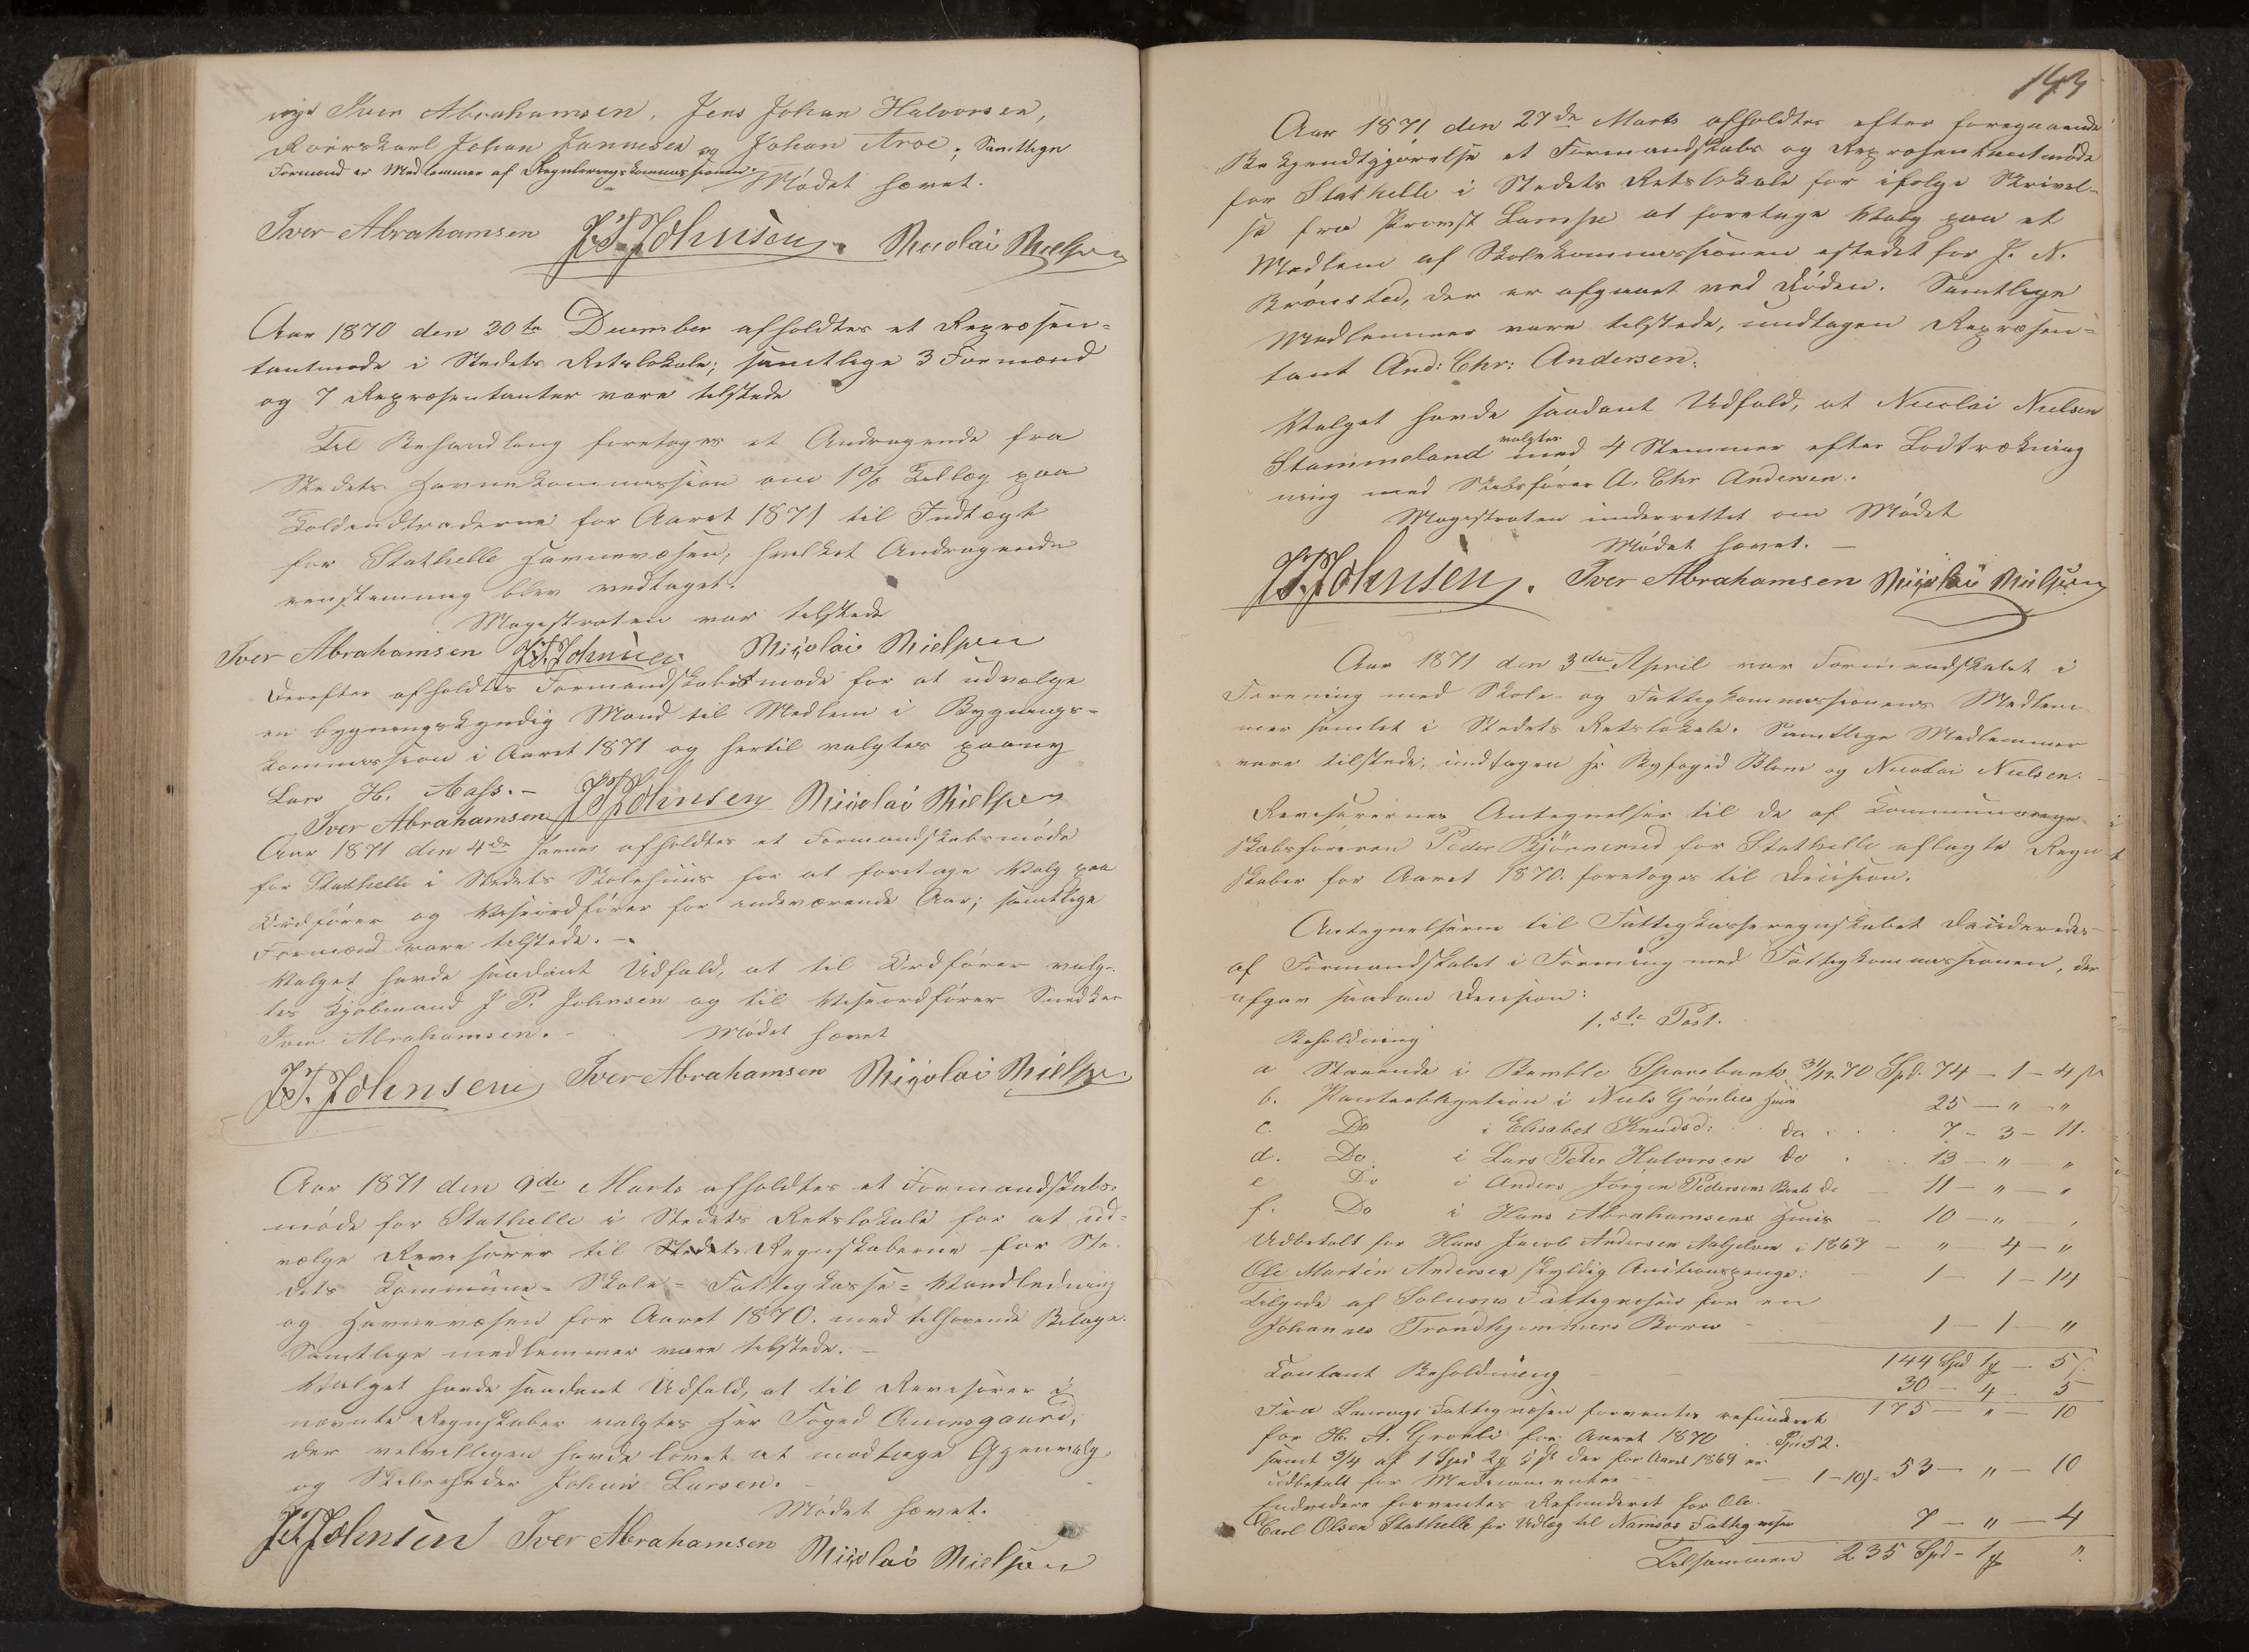 Iver Abrahamsen, Jens Johan Halvorsen,
Johan Jannesen og Johan Aroe; Samtlige
Formænd er Medlemmer af Reguleringskommissionen.
Mødet hævet.
Iver Abrahamsen J.P. Johnsen. Nicolai Nielsen
Aar 1870 den 30te December afholdtes et Repræsen-
tantmøde i Stedets Retslokale; samtlige 3 Formænd
og 7 Repræsentanter vare tilstede
Til Behandling foretoges et Andragende fra
Stedets Havnekommission om 1% Tillæg paa
Toldindtraderne for Aaret 1871 til Indtægt
for Stathelle Havnevæsen, hvilket Andragende
eenstemmig blev vedtaget.
Magistraten var tilstede
Iver Abrahamsen J.P. Johnsen Nicolai Nielsen
Derefter afholdtes Formandskabsmøde for at udvælge
en bygningskyndig Mand til Medlem i Bygnings-
kommission i Aaret 1871 og hertil valgtes paany
Lars H. Aass. -
Iver Abrahamsen J.P. Johnsen Nicolai Nielsen
Aar 1871 den 4de Januar afholdtes et Formandskabsmøde
for Stathelle i Stedets Skolehuus for at foretage Valg paa
Ordfører og Viseordfører for indeværende Aar; samtlige
Formænd vare tilstede. -
Valget havde saadant Udfald, at til Ordfører valg-
tes Kjøbmand J P. Johnsen og til Viseordfører Snedker
Iver Abrahamsen. - Mødet hævet
J.P. Johnsen Iver Abrahamsen Nicolai Nielsen
Aar 1871 den 9de Marts afholdtes et Formandskabs-
møde for Stathelle i Stedets Retslokale for at ud-
vælge Revisorer til Regnskaberne for Ste-
dets Kommune- Skole- Fattigkasse- Vandledning
og Havnevæsen for Aaret 1870. med tilhørende Bilage.
Samtlige medlemmer vare tilstede. -
Valget havde saadant Udfald, at til Revisorer i
nævnte Regnskaber valgtes Herr Foged Aamesgaard,
der velvilligen havde lovet at modtage Gjenvalg,
og Skibsrheder Johan Larsen.
Mødet hævet.
J.P. Johnsen Iver Abrahamsen Nicolai Nielsen
143
Aar 1871 den 27de Marts afholdtes efter foregaaende
Bekjendtgjørelse et Formandskabs og Repræsentantmøde
for Stathelle i Stedets Retslokale for ifølge Skrivel-
se fra Provst Lampe at foretage Valg paa et
Medlem af Skolekommissionen istedet for J. N.
Brønsted, der er afgaaet ved Døden. Samtlige
Medlemmer vare tilstede, undtagen Repræsen-
tant And: Chr: Andersen.
Valget havde saadant Udfald, at Nicolai Nielsen
Stammeland valgtes med 4 Stemmer efter Lodtrækning
ning med Skibsfører A. Chr Andersen.
Magistraten underrettet om Mødet
Mødet hævet. -
J.P. Johnsen. Iver Abrahamsen Nicolai Nielsen
Aar 1871 den 3die April var Formandskabet i
Forening med Skole- og Fattigkommissionens Medlem-
mer samlet i Stedets Retslokale. Samtlige Medlemmer
vare tilstede, undtagen Hr Byfoged Blom og Nicolai Nielsen. -
Revisorernes Antegnelser til de af Kommuneregn-
skabsføreren Peder Bjørnerud for Stathelle aflagte Regn-
skaber for Aaret 1870. foretoges til Decision.
Antegnelserne til Fattigkasseregnskabet decideredes
af Formandskabet i Forening med Fattigkommissionen, der
afgav saadan Decision:
1.ste Post.
Beholdning
a Staaende i Bamble Sparebank 31/12 70 Spd. 74 - 1 - 4 s
b. Panteobligation i Niels Grønlies Huus 25 - " - "
c. Do i Elisabet Knudsd: do 7 - 3 - 11.
d. Do i Lars Peter Halvorsen do 13 - " - "
e Do i Anders Jørgen Pedersens do 11 - " - "
f. Do i Hans Abrahamsens Huus 10 - " - "
Udbetalt for Hans Jacob Andersen i 1869 " - 4 - "
Ole Martin Andersen skyldig Auctionspenge: 1 - 1 - 14
Tilgode af Solums Fattigvæsen for en
Johannes Trondhjemmers Barn 1 - 1 - "
144 Spd 1 - 5
Contant Beholdning 30 - 4 - 5
175 - " - 10
Fra Laurvigs Fattigvæsen forventes refunderet
for H. A. Gronli for Aaret 1870 Spd 52.
samt 3/4 af 1 Spd 2 der for Aaret 1869 er
udbetalt for Medicamenter 1 - 10 53 - " - 10
Endvidere forventes Refunderet for Ole
Carl Olsen Stathelle for Udlæg til Namsos Fattigvæsen 7 - " - 4
Tilsammen 235 Spd - 1 "